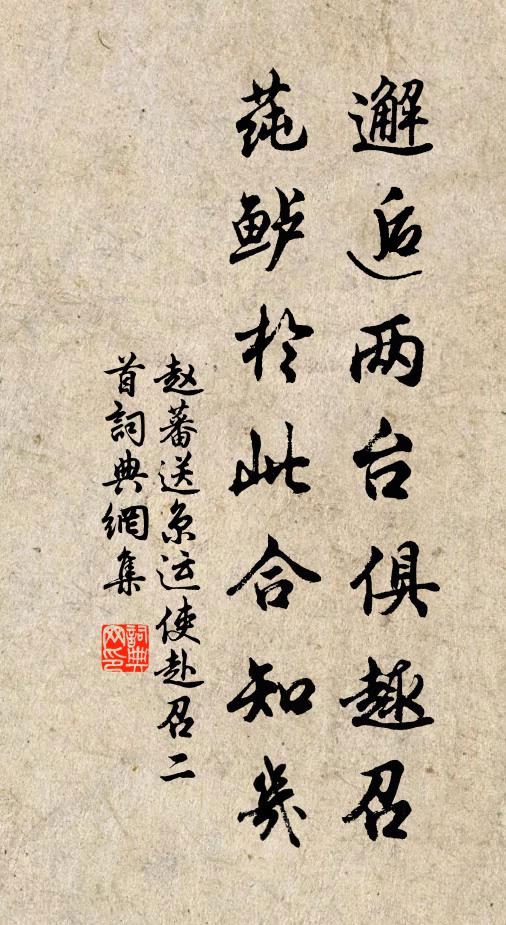 邂逅两台俱趣召
莼鲈于此合知几
赵蕃送京运使赴召二
首词典網集
詞典网印